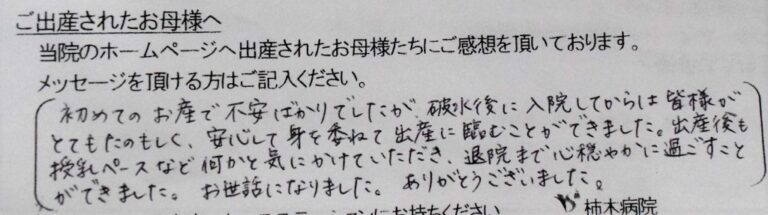 ご出産されたお母様へ
当院のホームページへ出産されたお母様たちにご感想を頂いております。
メッセージを頂ける方はご記入ください。
初めての お産で 不安ばかりでしたが、破水後に 入院してからは 皆様が
とてもたのもしく、安心して 身を委ねて 出産に 臨むことができました。出産後も
授乳ペースなど 何かと 気に かけていただき、退院まで 心穏やかに 過ごすこと
ができました。 お世話になりました。 ありがとうございました。
柿木病院
ションにお持ちください